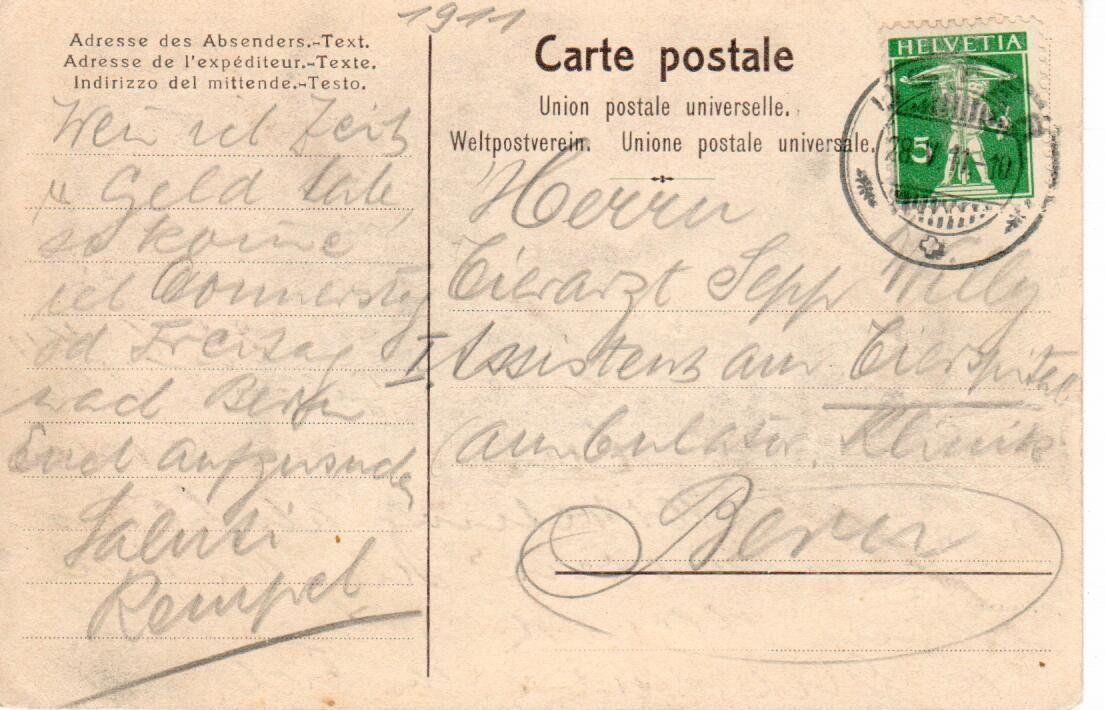 1911
Adresse des Absenders.-Text.
Adresse de l'expéditeur.-Texte.
Indirizzo del mittende.-Testo.
Carte postale
Union postale universelle.
Weltpostverein. Unione postale universale.
HELVETIA
5
Wen ich Zeit
u Geld habe
so kome
ich Donnerstag
od Freitag
nach Bern
Euch aufzusuche
Saluti
Rempel
Herrn
Tierarzt Sepp Willy
I. Assistent am Tierspital
ambulator. Klinik
Bern